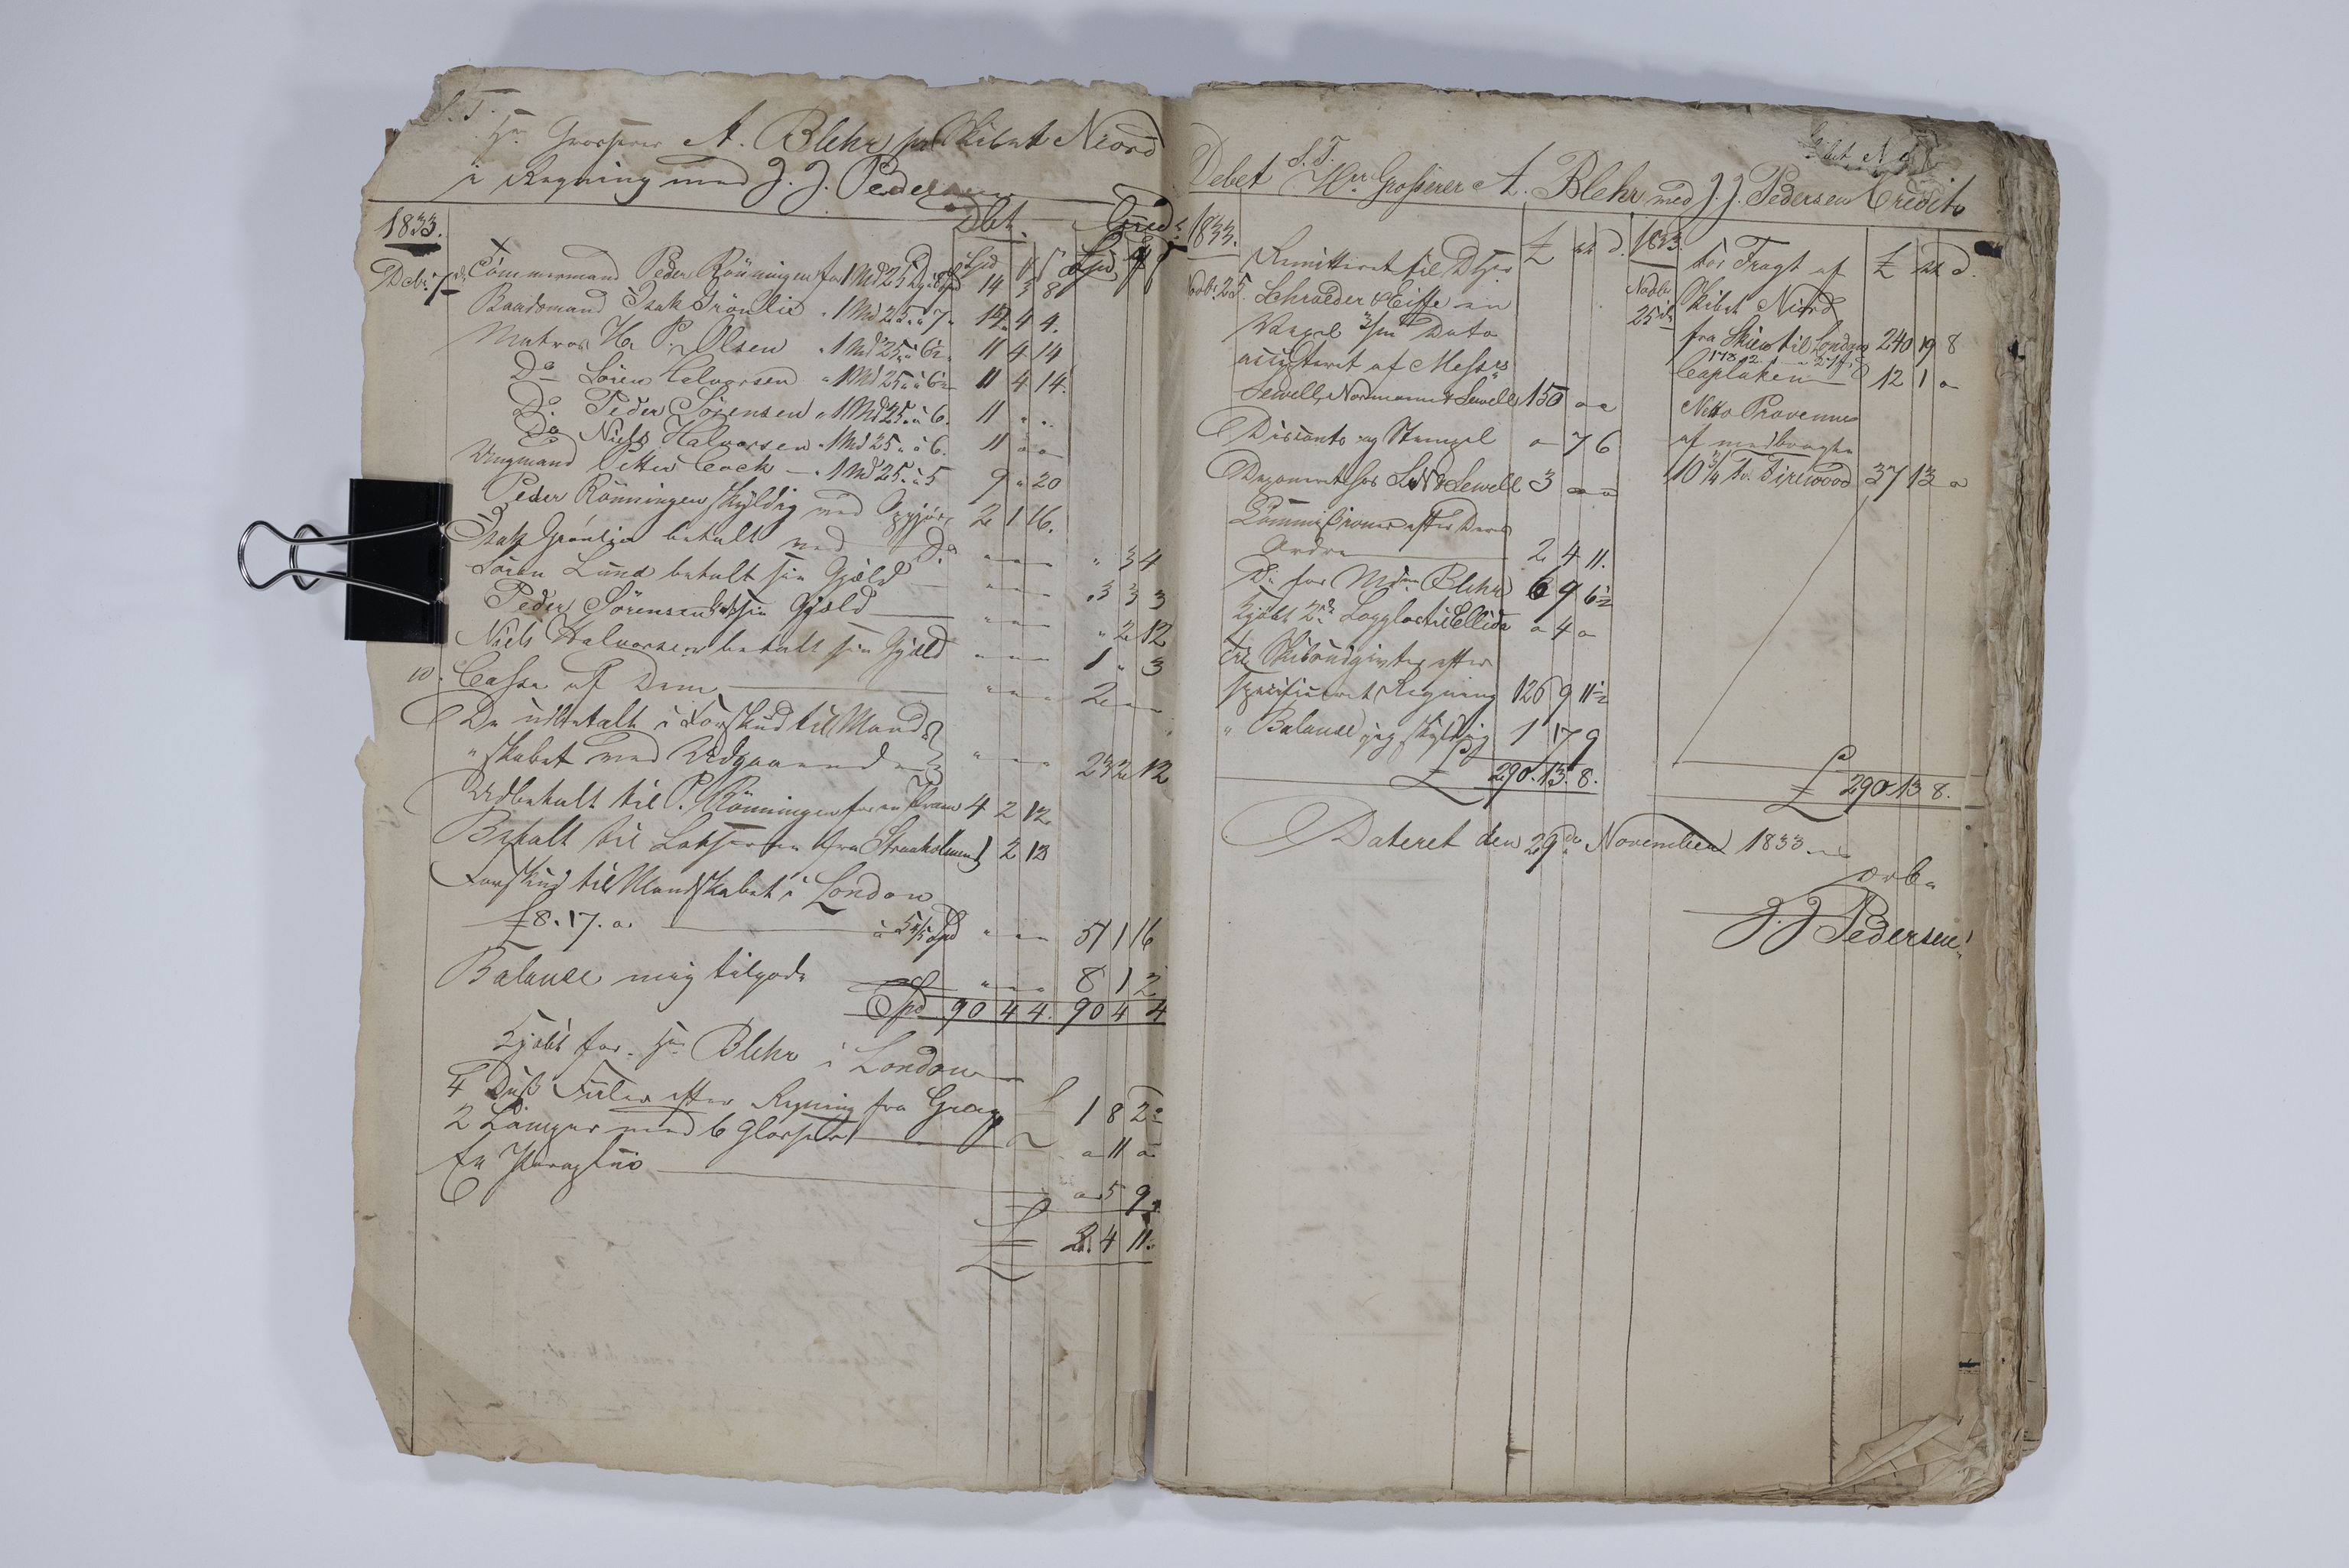 S. T.
Hr Grosserer A. Blehr paa Skibet Niord
i Regning med J. J. Pedersen
Debt. Cred.
1833.
Spd # ß Spd # ß
Decbr. 7de Tömmermand Peder Rönningen for 1 Md 25 Dg à 8 Spd 14 3 8
Baadsmand Isak Grönlie " 1 Md 25 " à 7 " 12 4 4.
Matros H. P. Olsen " 1 Md 25 " à 6½ " 11 4 14
Do Sören Halvorsen " 1 Md 25 " à 6½ " 11 4 14.
Do Peder Sørensen " 1 Md 25 " à 6. 11 " "
Do Niels Halvorsen " 1 Md 25 " à 6. 11 " "
Ungmand Petter Cock — " 1 Md 25 " à 5 9 " 20
Peder Rönningen skyldig ved Opgjör 2 1 16.
Isak Grönlie betalt ved Do " " " " 3 4
Sören Lund betalt sin Gjæld " " " 3 3 3
Peder Sörensen bet. sin Gjæld " " " " 2 12
Niels Halvorsen betalt sin Gjæld " " " 1 " 3
10. Cassa af Dem " " " 2 " "
De udbetalt i Forskud til Mand-
" skabet ved Udgaaende " " " 23 2 12
Udbetalt til P. Rönningen for en Pram 4 2 12
Betalt til Lodsen fra Straaholmen 1 2 12
Forskud til Mandskabet i London
£ 8. 17. " à 5 4/5 Spd " " " 51 1 16
Balance mig tilgode " " " 8 1 2
Spd 90 4 4. 90 4 4
Kjöbt for Hr Blehr i London
4 Duß Fiiler efter Regning fra Gray £ 1 8 2
2 Lamper med 6 Glasser " 11 "
En Paraplui " 5 9
£ 2. 4 11.
Debet S. T. Herr Grosserer A. Blehr med J. J. Pedersen Credit
1833. £ sh d.
Novbr. 25. Remitteret til DHrr
Schröder & Eiffe en
Vexel 3/m Dato
accepteret af Messrs
Sewell, Normann & Sewell 150 " "
Disconto og Stempel " 7 6
Deponeret hos S. N. & Sewell 3 " "
Commissioner efter Deres
Ordre 2 4 11.
Do for Mdme Blehr 6 9 6½
Kjöbt 2de Logglas til Ellida " 4 "
Til Skibsudgivter efter
specificeret Regning 126 9 11½
" Balance jeg skyldig 1 17 9
£ 290. 13. 8.
1833. £ sh d.
Novbr 25de for Fragt af
Skibet Niord
fra Skien til London 240 19 8
Caplaken 12 1 "
Netto Provenue
af medbragte
10 3/4 Fv. Firewood 37 13 "
£ 290 13 8.
Dateret den 29de November 1833
ærb.
J. J. Pedersen